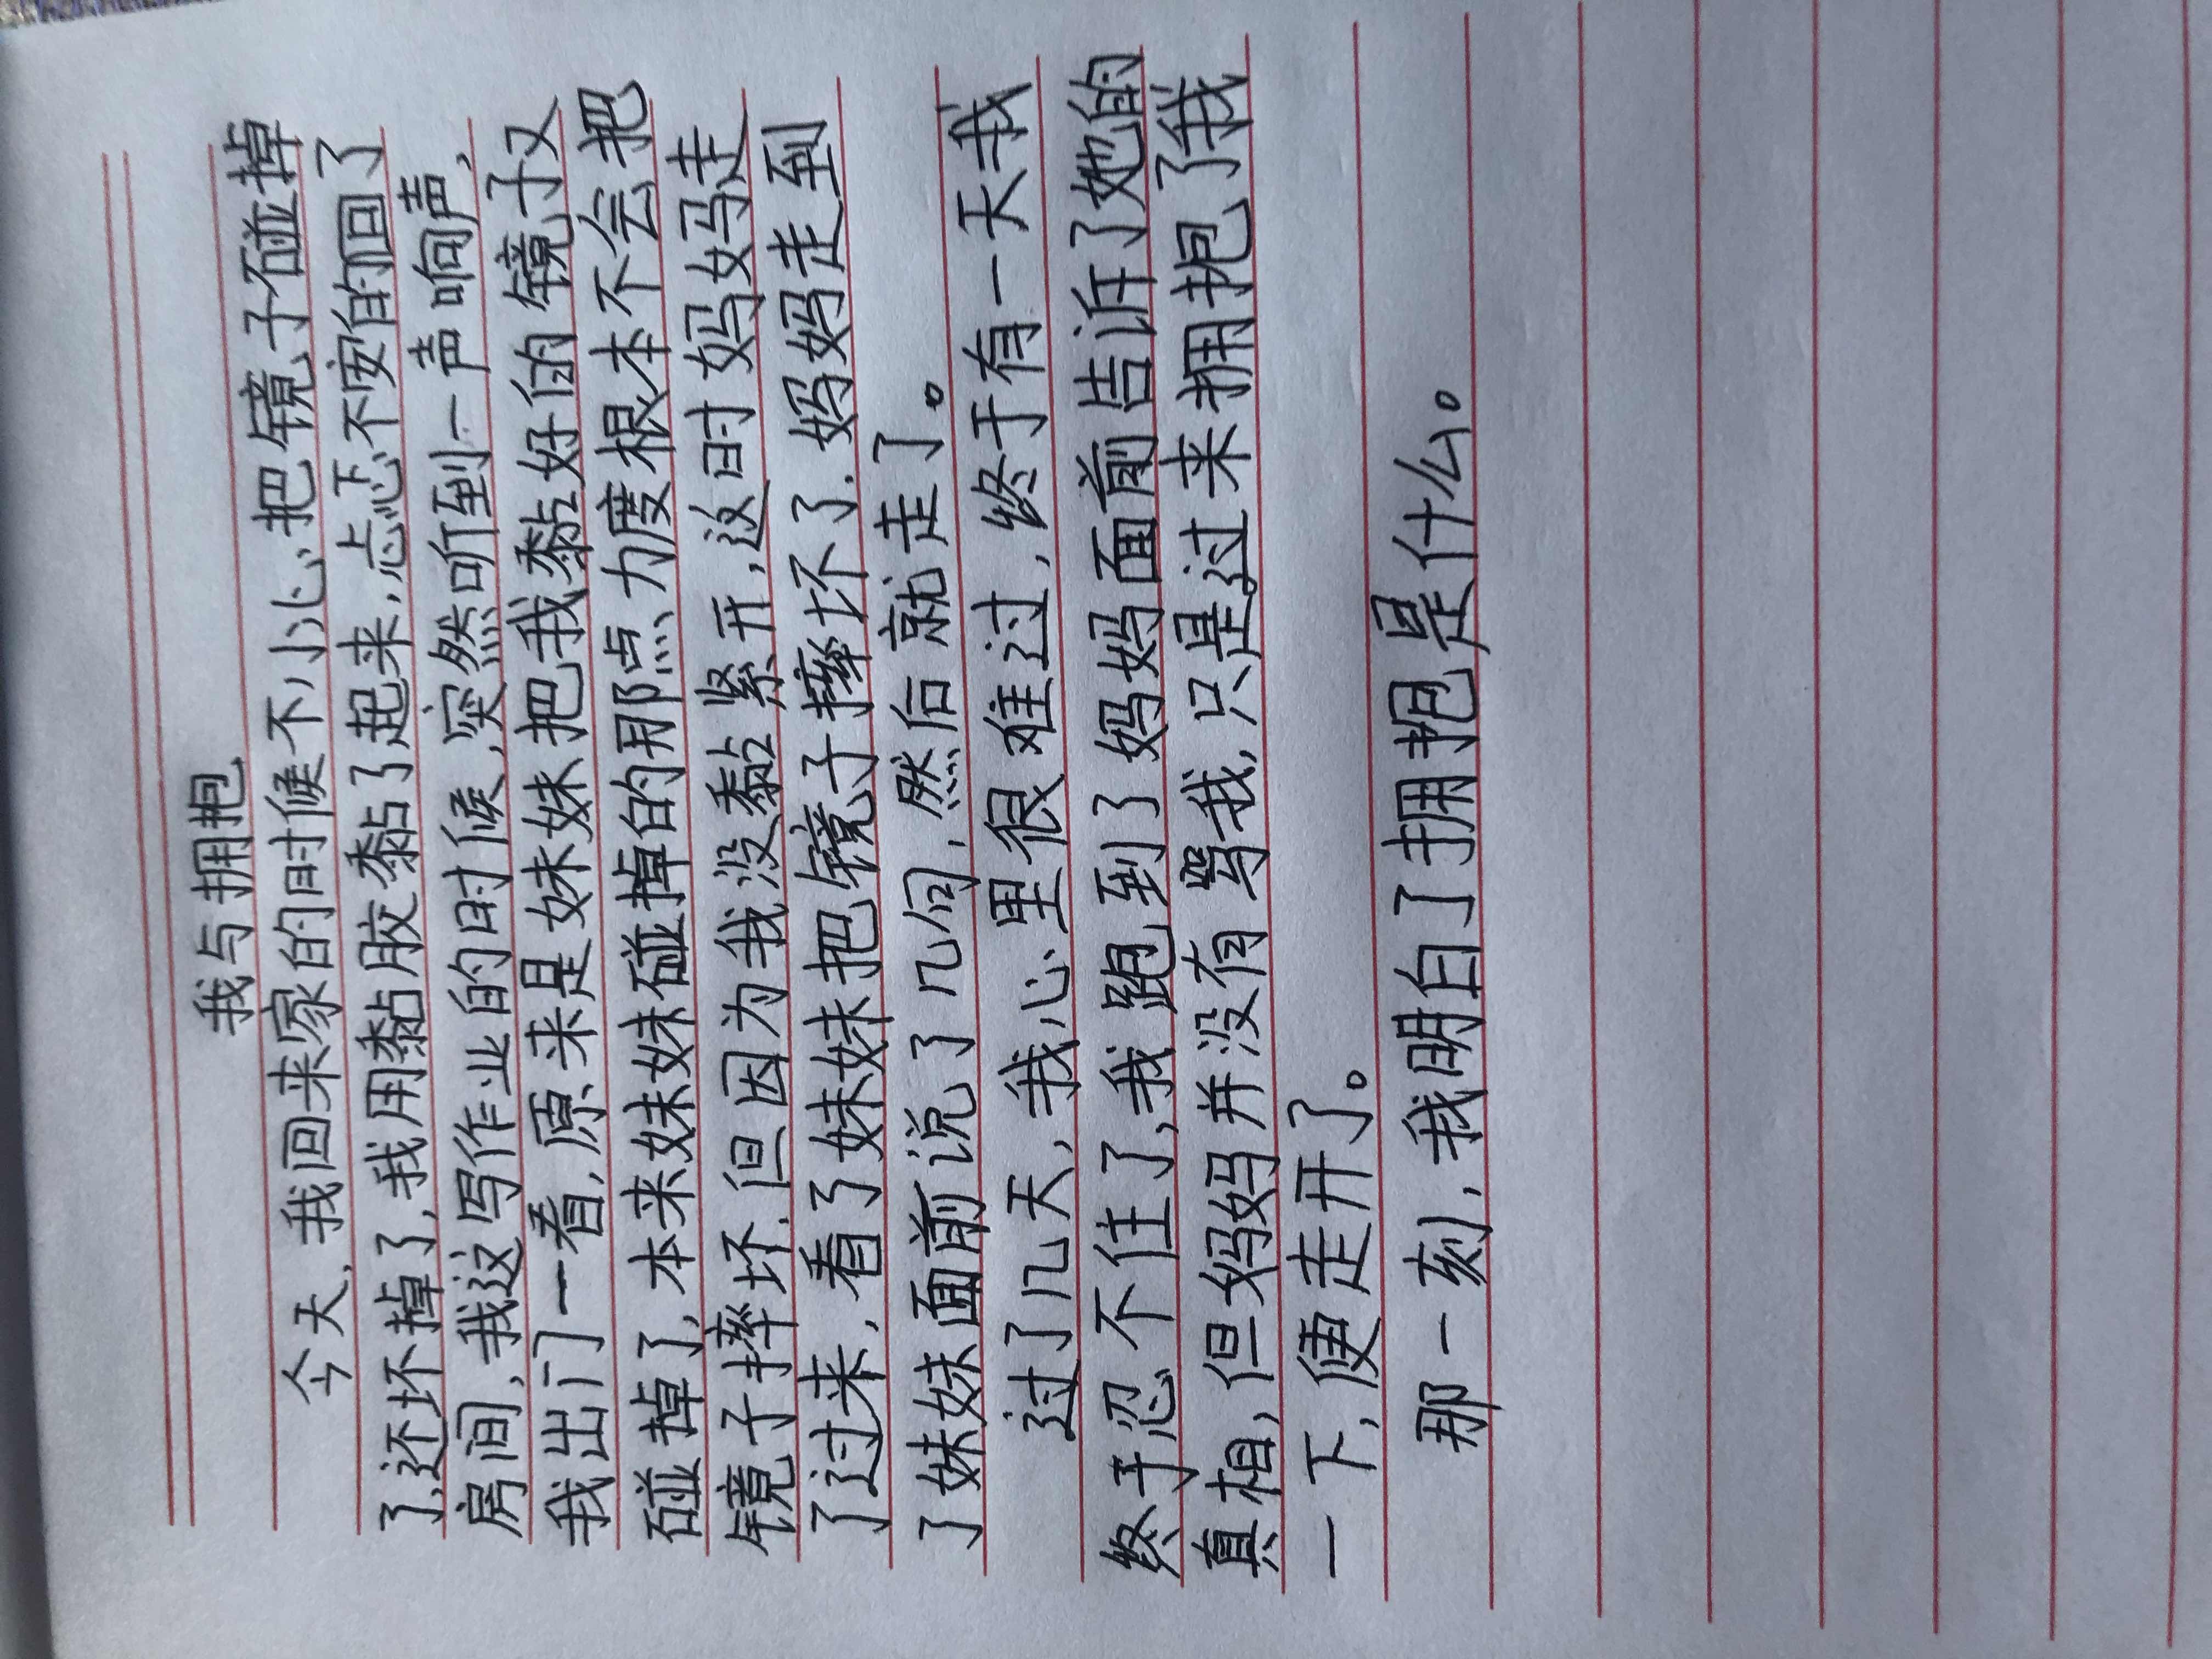 我与拥抱
今天，我回来家的时候不小心把镜子碰掉
了，还坏掉了，我用黏胶黏了起来，忐忑不安的回了
房间，我这写作业的时候，突然听到一声响声，
我出门一看，原来是妹妹把我黏好的镜子又
碰掉了，本来妹妹碰掉的那点力度根本不会把
镜子摔坏，但因为我没黏紧开，这时妈妈走
了过来，看了妹妹把镜子摔坏了，妈妈走到
了妹妹面前说了几句，然后就走了。
过了几天，我心里很难过，终于有一天我
终于忍不住了，我跑到了妈妈面前告诉了她的
真相，但妈妈并没有骂我，只是过来拥抱了我
一下，便走开了。
那一刻，我明白了拥抱是什么。